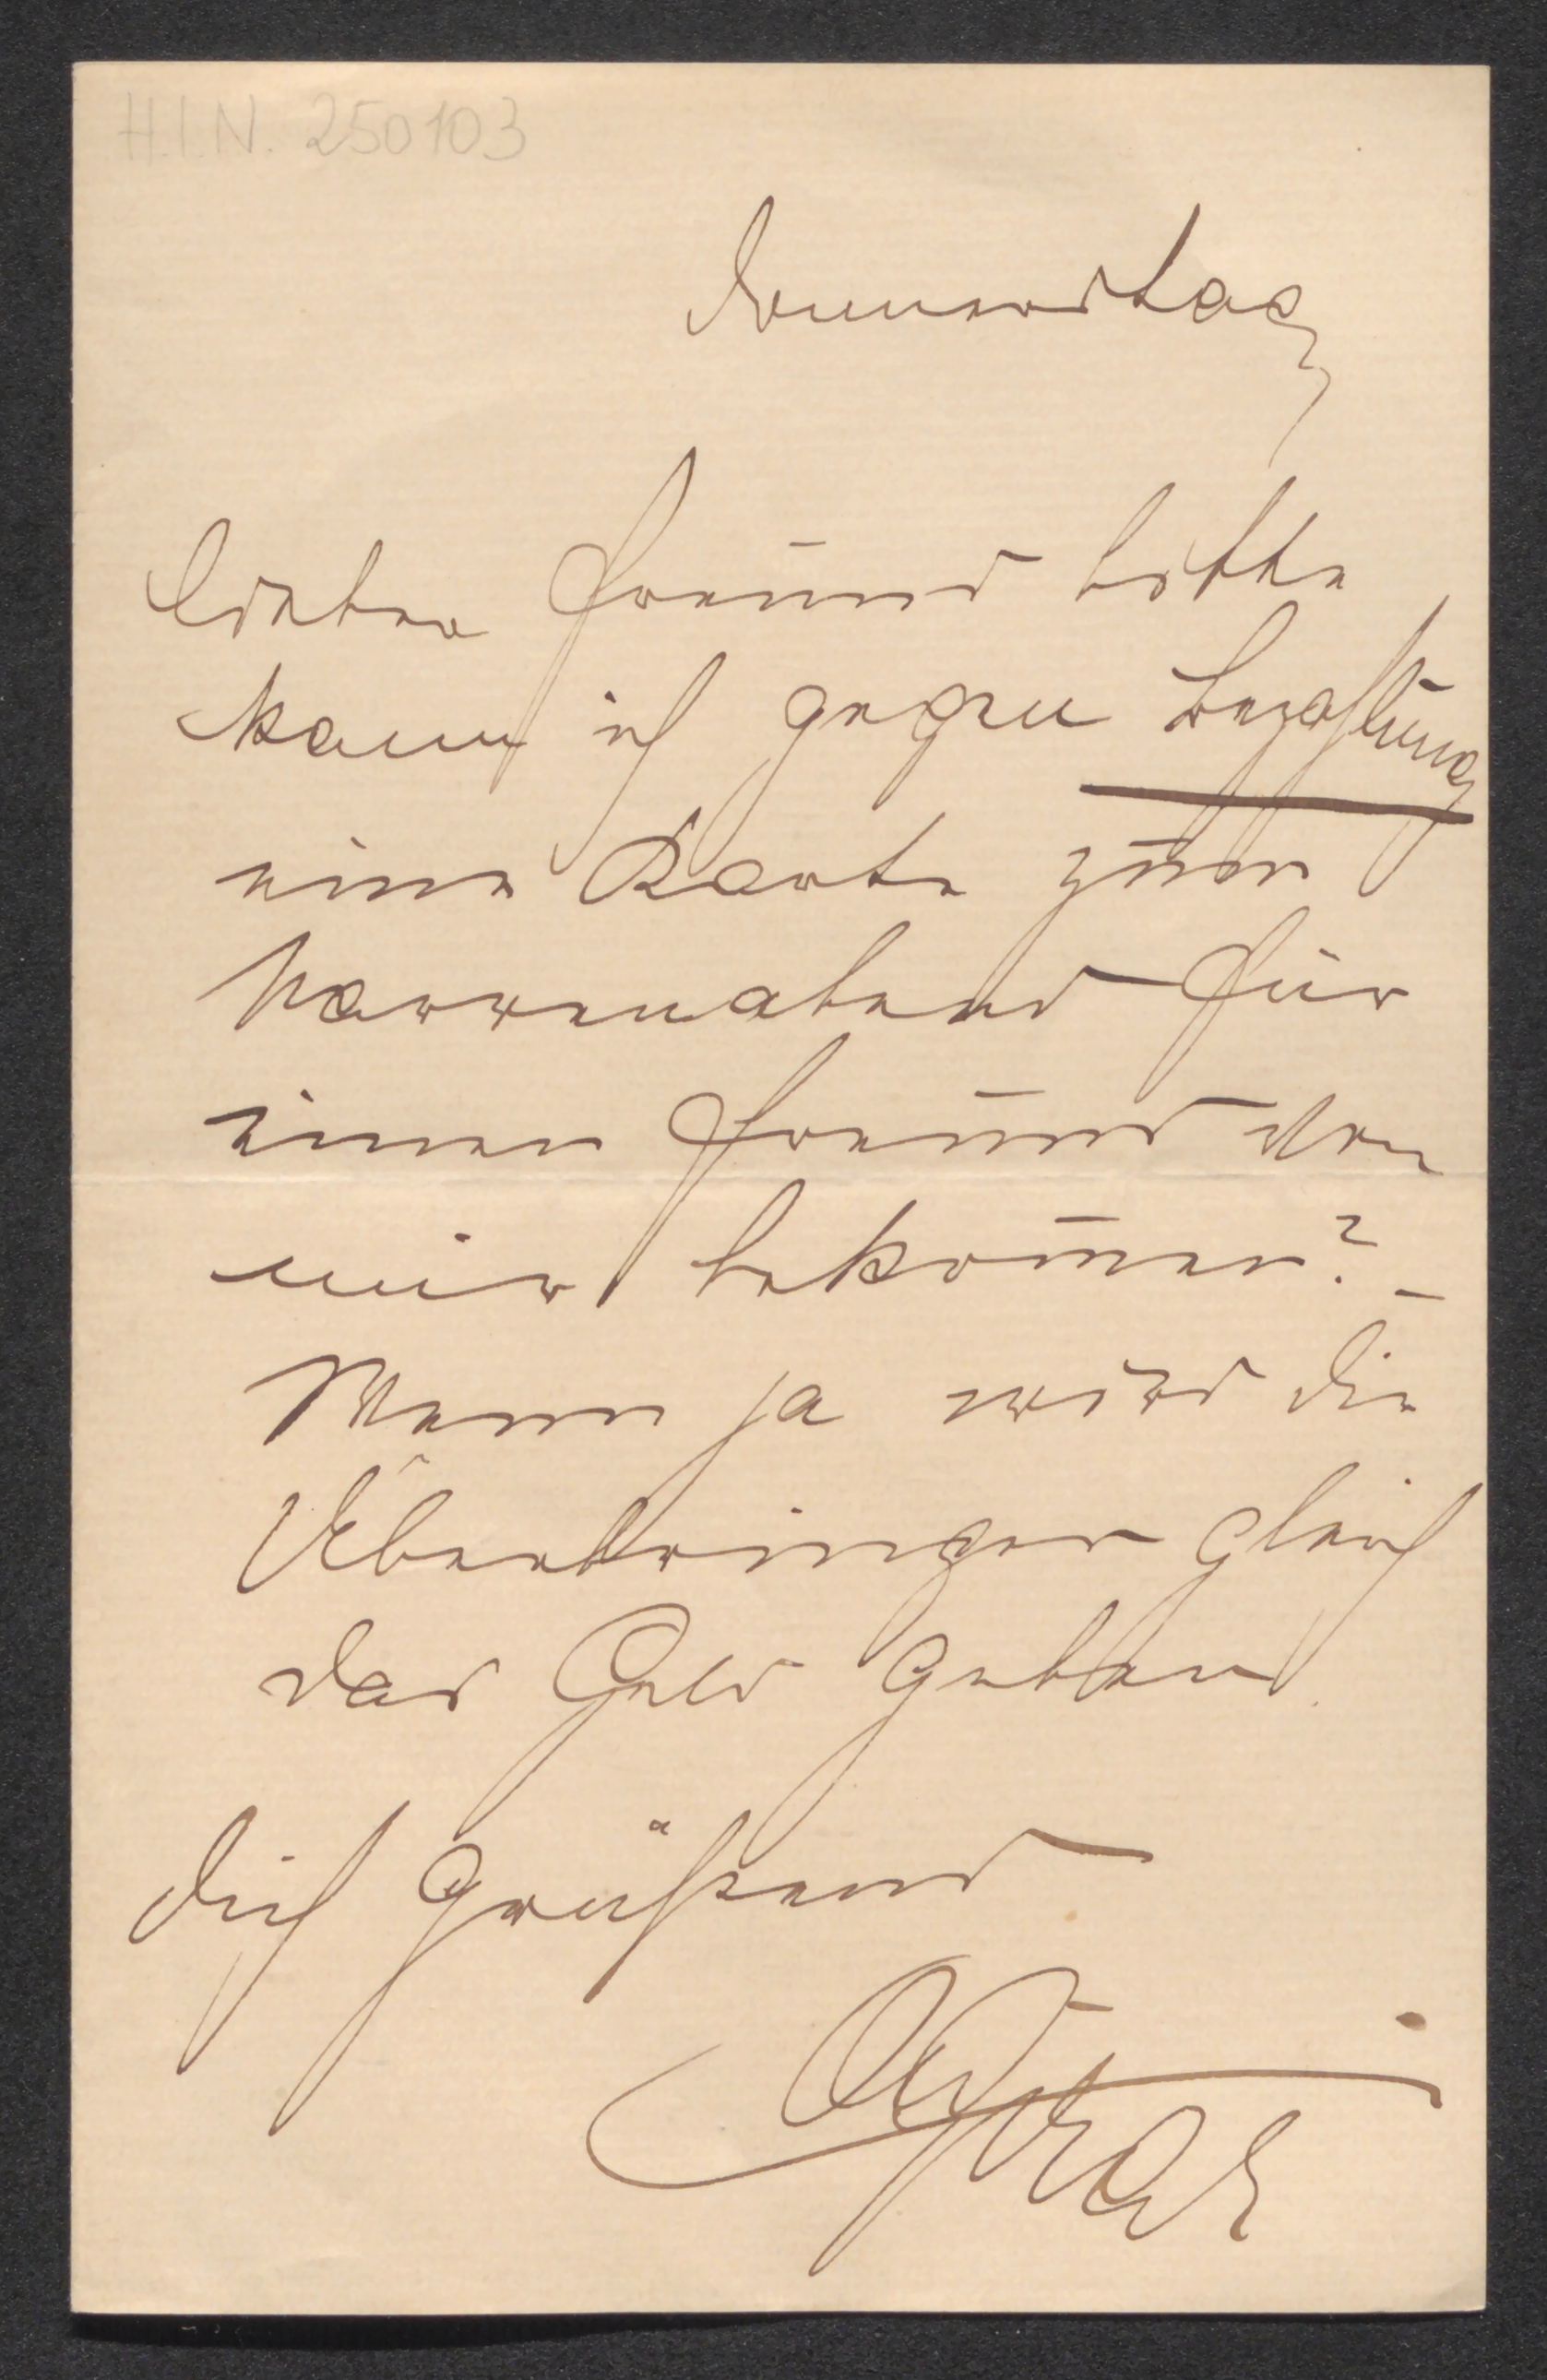 H.I.N. 250103
Donnerstag
Lieber Freund bitte
kann ich gegen Bezahlung
eine Karte zum
Narrenabend für
einen Freund von
mir bekom̅en? –
Wenn ja wird die
Überbringer gleich
das Geld geben.
Dich grüßend